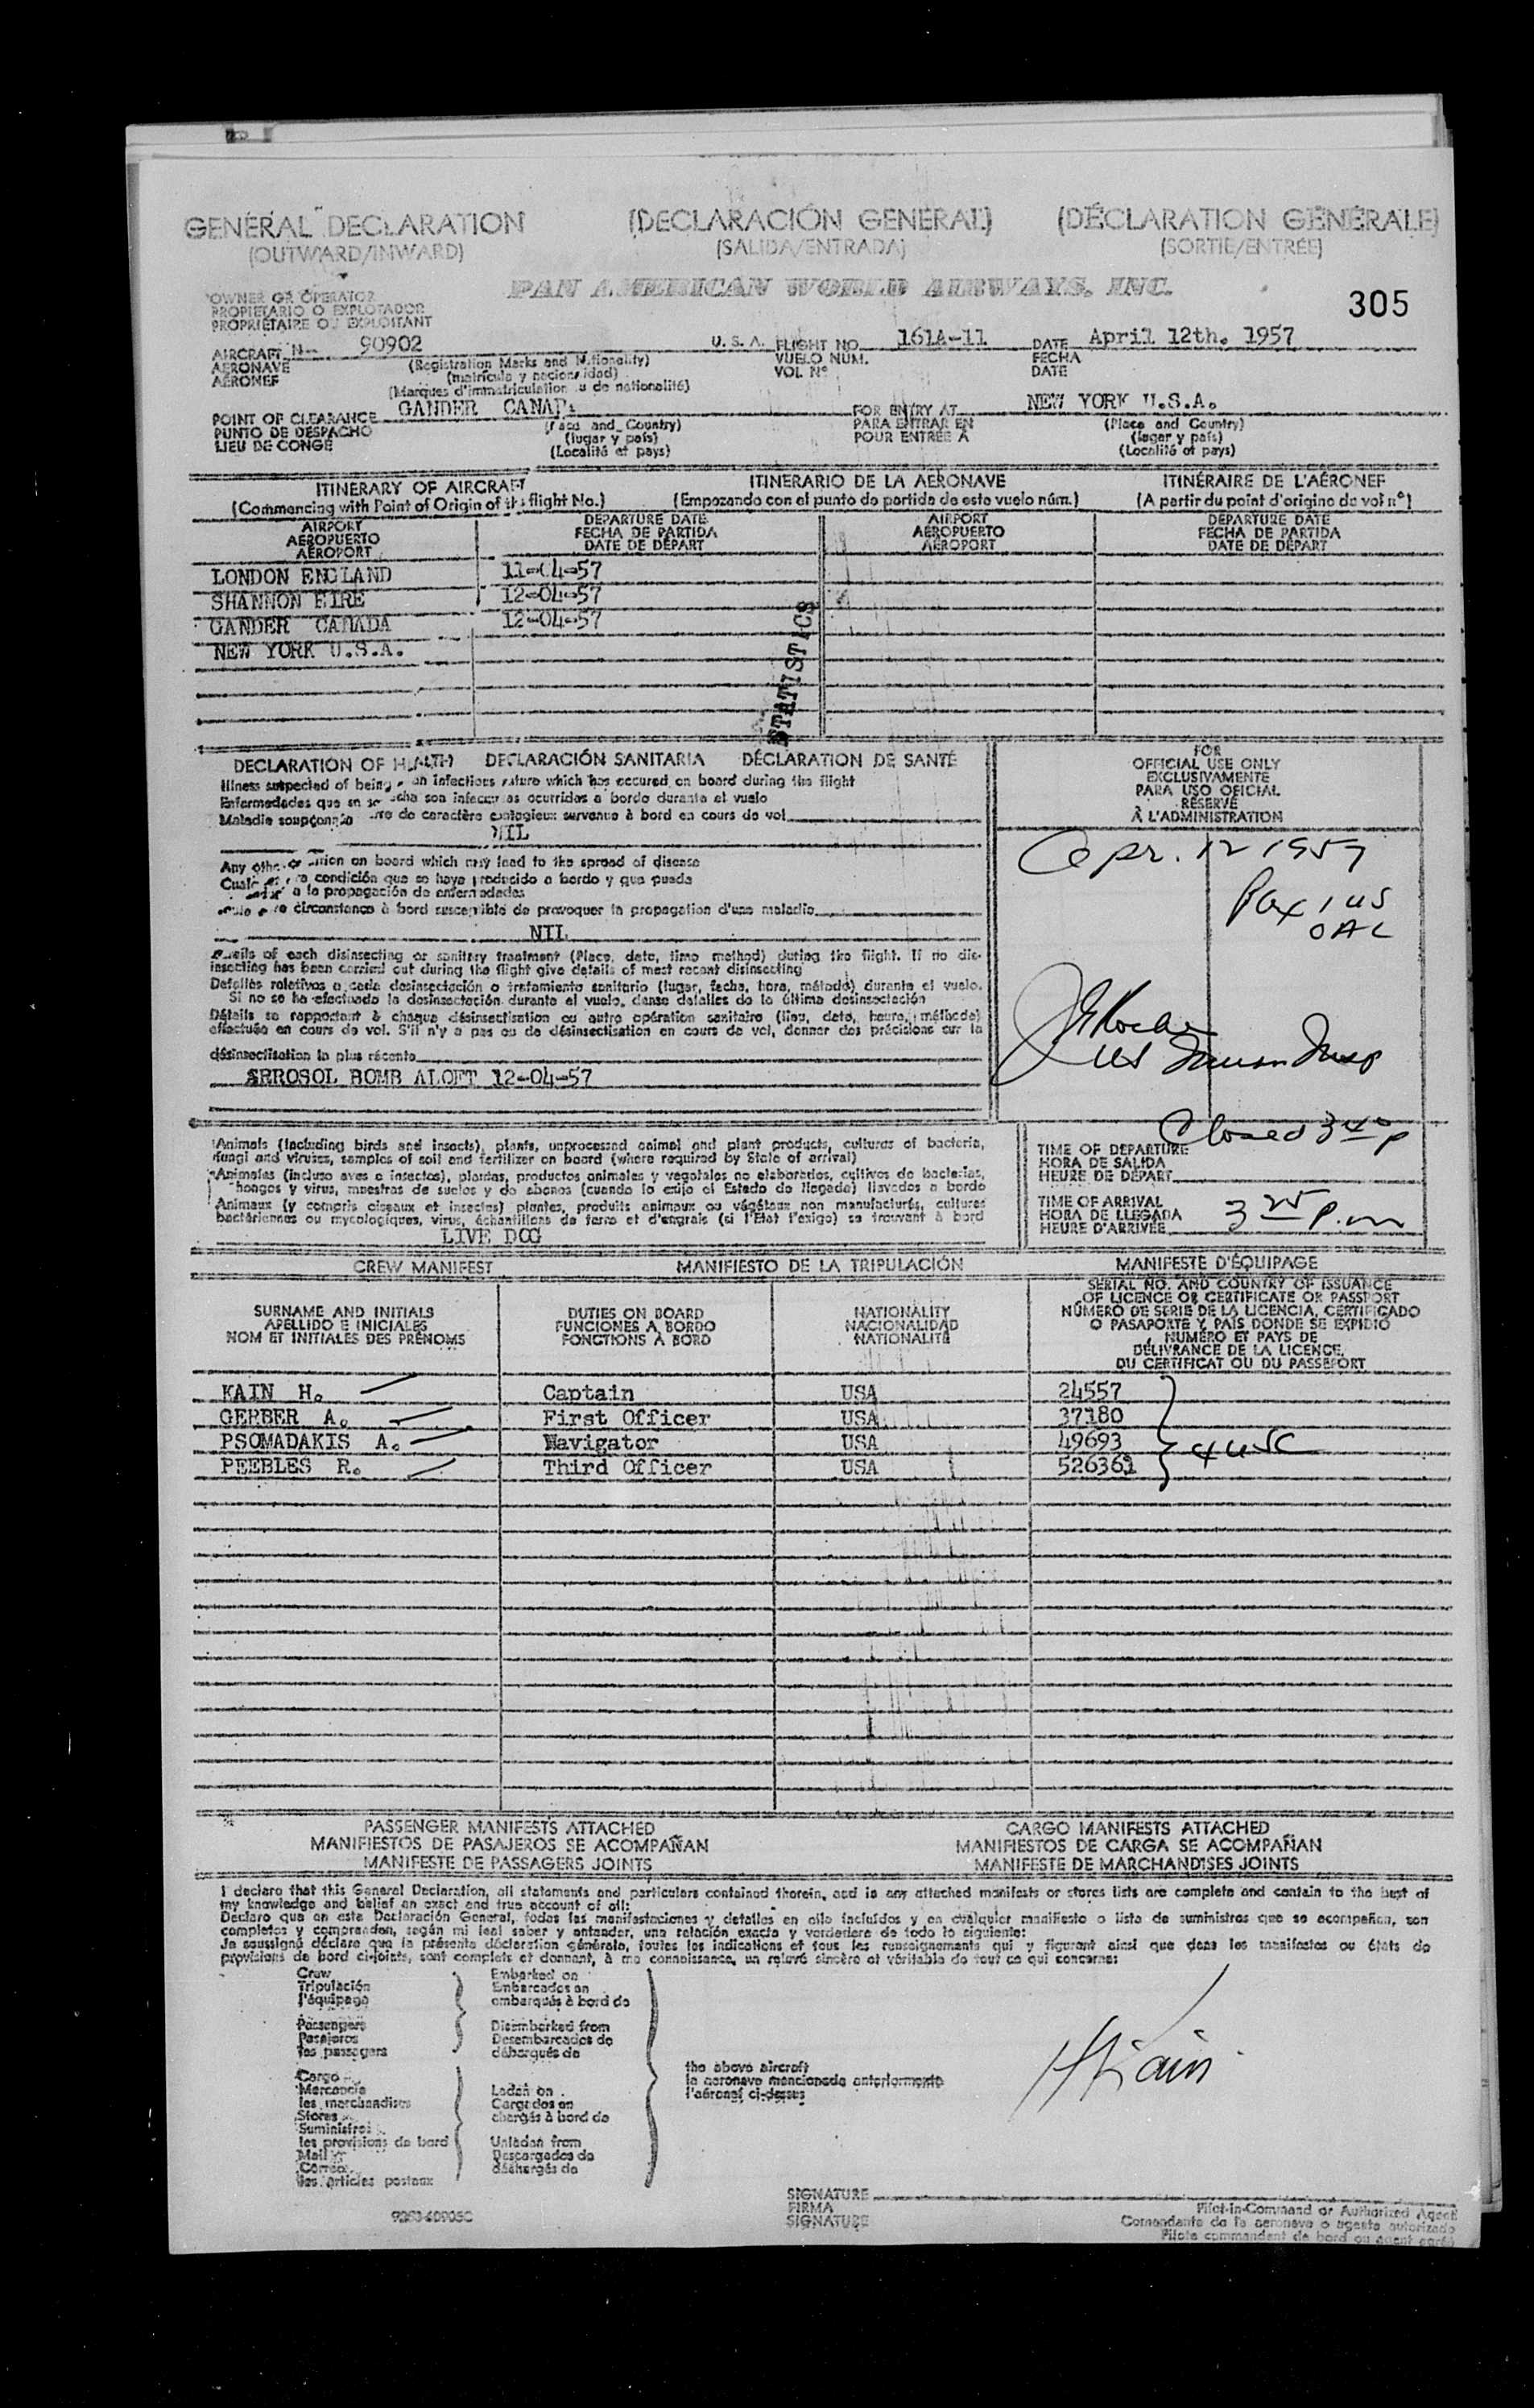 GENERAL DECLARATION (DECLARACIÓN GENERAL) (DÉCLARATION GÉNÉRALE)
(OUTWARD/INWARD) (SALIDA/ENTRADA) (SORTIE/ENTRÉE)
PAN AMERICAN WORLD AIRWAYS, INC.
305
OWNER OR OPERATOR
PROPIETARIO O EXPLOTADOR
PROPRIÉTAIRE OU EXPLOITANT
AIRCRAFT N- 90902 U. S. A. FLIGHT NO. 161A-11 DATE April 12th. 1957
AERONAVE (Registration Marks and Nationality) VUELO NÚM. FECHA
AÉRONEF (matrícula y nacionalidad) VOL Nº DATE
(Marques d'immatriculation ou de nationalité)
POINT OF CLEARANCE GANDER CANADA FOR ENTRY AT NEW YORK U.S.A.
PUNTO DE DESPACHO (Place and Country) PARA ENTRAR EN (Place and Country)
LIEU DE CONGÉ (lugar y país) POUR ENTRÉE À (lugar y país)
(Localité et pays) (Localité et pays)
ITINERARY OF AIRCRAFT ITINERARIO DE LA AERONAVE ITINÉRAIRE DE L'AÉRONEF
(Commencing with Point of Origin of this flight No.) (Empezando con el punto de partida de este vuelo núm.) (A partir du point d'origine de vol nº)
AIRPORT DEPARTURE DATE AIRPORT DEPARTURE DATE
AEROPUERTO FECHA DE PARTIDA AEROPUERTO FECHA DE PARTIDA
AÉROPORT DATE DE DÉPART AÉROPORT DATE DE DÉPART
LONDON ENGLAND 11-04-57
SHANNON EIRE 12-04-57
GANDER CANADA 12-04-57
NEW YORK U.S.A.
STATISTICS
DECLARATION OF HEALTH DECLARACIÓN SANITARIA DÉCLARATION DE SANTÉ
Illness suspected of being of an infectious nature which has occured on board during the flight
Enfermedades que se sospecha son infecciosas ocurridas a bordo durante el vuelo
Maladie soupçonnée être de caractère contagieux survenue à bord en cours de vol
NIL
Any other condition on board which may lead to the spread of disease
Cualquier otra condición que se haya producido a bordo y que pueda
a la propagación de enfermedades
circonstance à bord susceptible de provoquer la propagation d'une maladie
NIL
Details of each disinsecting or sanitary treatment (Place, date, time method) during the flight. If no dis-
insecting has been carried out during the flight give details of most recent disinsecting
Detalles relativos a cada desinsectación o tratamiento sanitario (lugar, fecha, hora, método) durante el vuelo.
Si no se ha efectuado la desinsectación durante el vuelo, danse detalles de la última desinsectación
Détails se rapportant à chaque désinsectisation ou autre opération sanitaire (lieu, date, heure, méthode)
effectuée en cours de vol. S'il n'y a pas eu de désinsectisation en cours de vol, donner des précisions sur la
désinsectisation la plus récente
ARROSOL BOMB ALOFT 12-04-57
FOR
OFFICIAL USE ONLY
EXCLUSIVAMENTE
PARA USO OFICIAL
RÉSERVÉ
À L'ADMINISTRATION
Apr. 12 1957
Pax 1 US
0 AL
US Immn Insp
Closed 3 40 p
Animals (including birds and insects), plants, unprocessed animal and plant products, cultures of bacteria,
fungi and viruses, samples of soil and fertilizer on board (where required by State of arrival)
Animales (incluso aves o insectos), plantas, productos animales y vegetales no elaborados, cultivos de bacterias,
hongos y virus, muestras de suelos y de abonos (cuando lo exija el Estado de llegada) llevados a bordo
Animaux (y compris oiseaux et insectes) plantes, produits animaux ou végétaux non manufacturés, cultures
bactériennes ou mycologiques, virus, échantillons de terre et d'engrais (si l'Etat l'exige) se trouvant à bord
LIVE DOG
TIME OF DEPARTURE
HORA DE SALIDA
HEURE DE DÉPART
TIME OF ARRIVAL
HORA DE LLEGADA 3 25 p.m
HEURE D'ARRIVÉE
CREW MANIFEST MANIFIESTO DE LA TRIPULACIÓN MANIFESTE D'ÉQUIPAGE
SURNAME AND INITIALS
APELLIDO E INICIALES
NOM ET INITIALES DES PRÉNOMS
DUTIES ON BOARD
FUNCIONES A BORDO
FONCTIONS À BORD
NATIONALITY
NACIONALIDAD
NATIONALITÉ
SERIAL NO. AND COUNTRY OF ISSUANCE
OF LICENCE OR CERTIFICATE OR PASSPORT
NÚMERO DE SERIE DE LA LICENCIA, CERTIFICADO
O PASAPORTE Y PAÍS DONDE SE EXPIDIÓ
NUMÉRO ET PAYS DE
DÉLIVRANCE DE LA LICENCE,
DU CERTIFICAT OU DU PASSEPORT
KAIN H. Captain USA 24557
GERBER A. First Officer USA 37180
PSOMADAKIS A. Navigator USA 49693 4 USC
PEEBLES R. Third Officer USA 526361
PASSENGER MANIFESTS ATTACHED CARGO MANIFESTS ATTACHED
MANIFIESTOS DE PASAJEROS SE ACOMPAÑAN MANIFIESTOS DE CARGA SE ACOMPAÑAN
MANIFESTE DE PASSAGERS JOINTS MANIFESTE DE MARCHANDISES JOINTS
I declare that this General Declaration, all statements and particulars contained therein, and in any attached manifests or stores lists are complete and contain to the best of
my knowledge and belief an exact and true account of all:
Declaro que en esta Declaración General, todas las manifestaciones y detalles en ella incluídos y en cualquier manifiesto o lista de suministros que se acompañan, son
completos y comprenden, según mi leal saber y entender, una relación exacta y verdadera de todo lo siguiente:
Je soussigné déclare que la présente déclaration générale, toutes les indications et tous les renseignements qui y figurent ainsi que dans les manifestes ou états de
provisions de bord ci-joints, sont complets et donnent, à ma connaissance, un relevé sincère et véritable de tout ce qui concerne:
Crew Embarked on
Tripulación Embarcados en
l'équipage embarqués à bord de
Passengers Disembarked from
Pasajeros Desembarcados de
les passagers débarqués de
Cargo
Mercancía Laden on
les marchandises Cargados en
Stores chargés à bord de
Suministros
les provisions de bord Unladen from
Mail Descargados de
Correo déchargés de
les articles postaux
the above aircraft
la aeronave mencionada anteriormente
l'aéronef ci-dessus
HKain
SIGNATURE
FIRMA
SIGNATURE
Pilot-in-Command or Authorized Agent
Comandante de la aeronave o agente autorizado
Pilote commandant de bord ou agent agréé